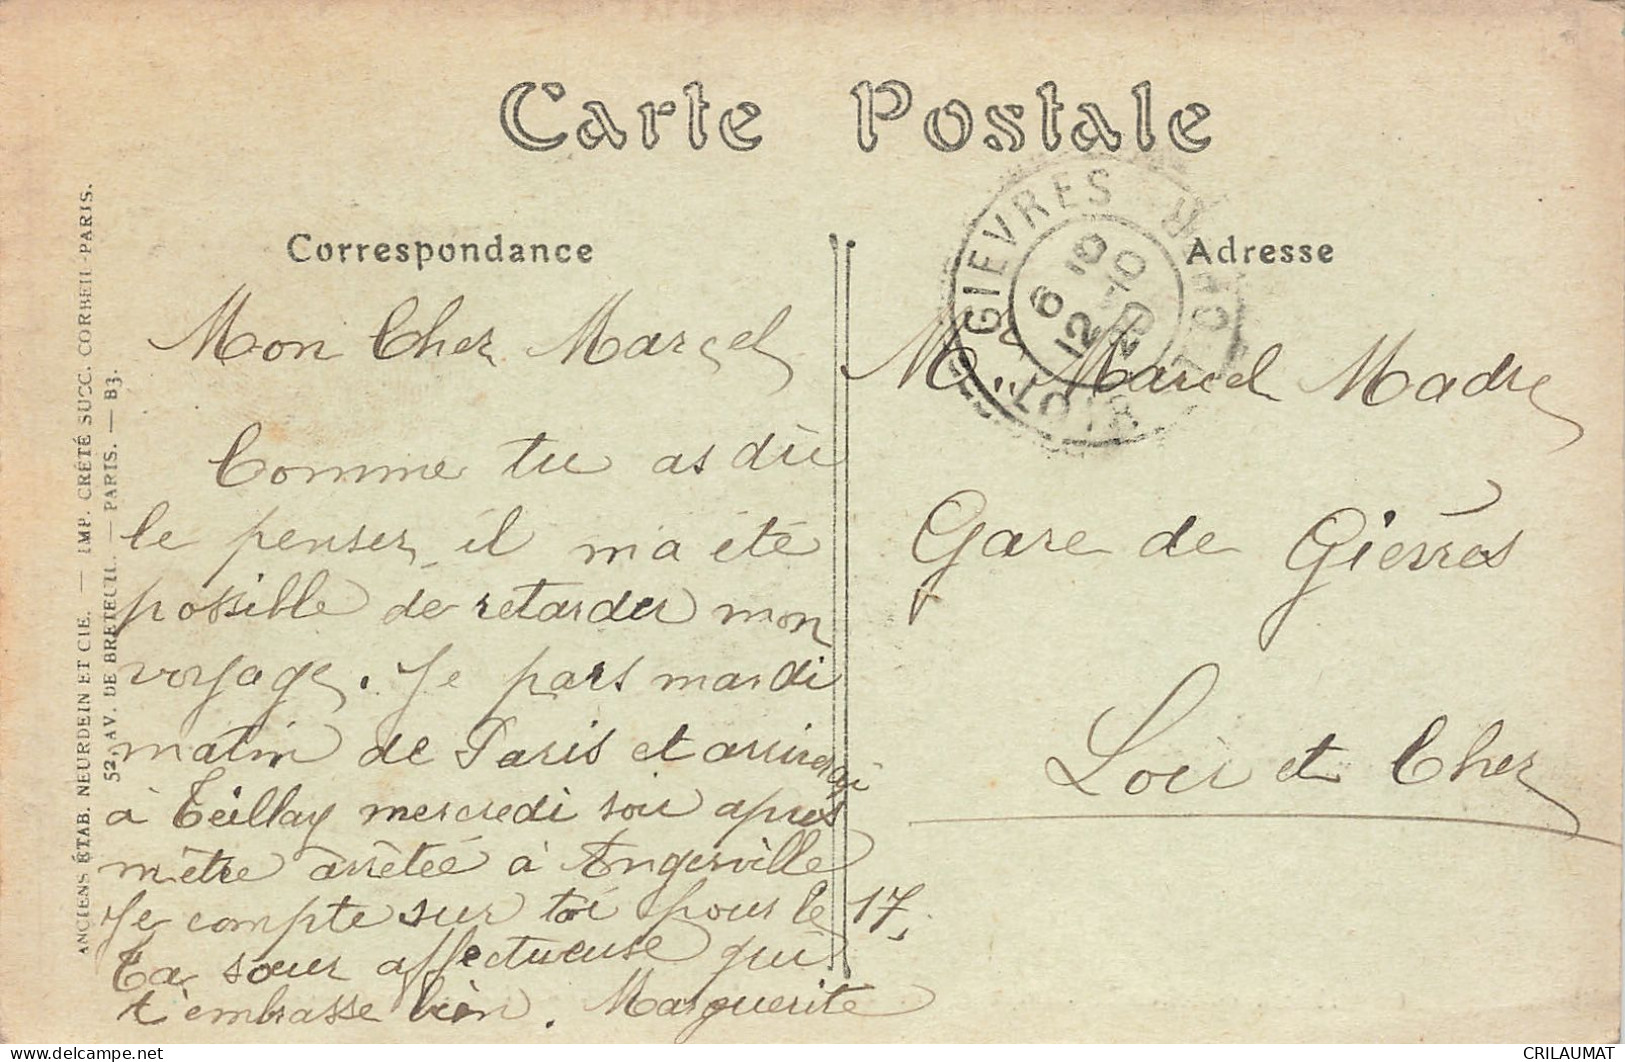 Carte Postale
Correspondance
Adresse
Mon Cher Marcel
Comme tu as dû
le penser, il m'a été
possible de retarder mon
voyage. Je pars mardi
matin de Paris et arriverai
à Teillay mercredi soir après
m'être arrêtée à Angerville
Je compte sur toi pour le 17.
Ta sœur affectueuse qui
t'embrasse bien. Marguerite
Mr Marcel Madre
Gare de Gièvres
Loir et Cher
GIEVRES
LOIR ET CHER
6 10
12 - 10
20
ANCIENS ÉTAB. NEURDEIN ET CIE. — IMP. CRÉTÉ SUCC. CORBEIL-PARIS.
52, AV. DE BRETEUIL. — PARIS. — B3.
CRILAUMAT